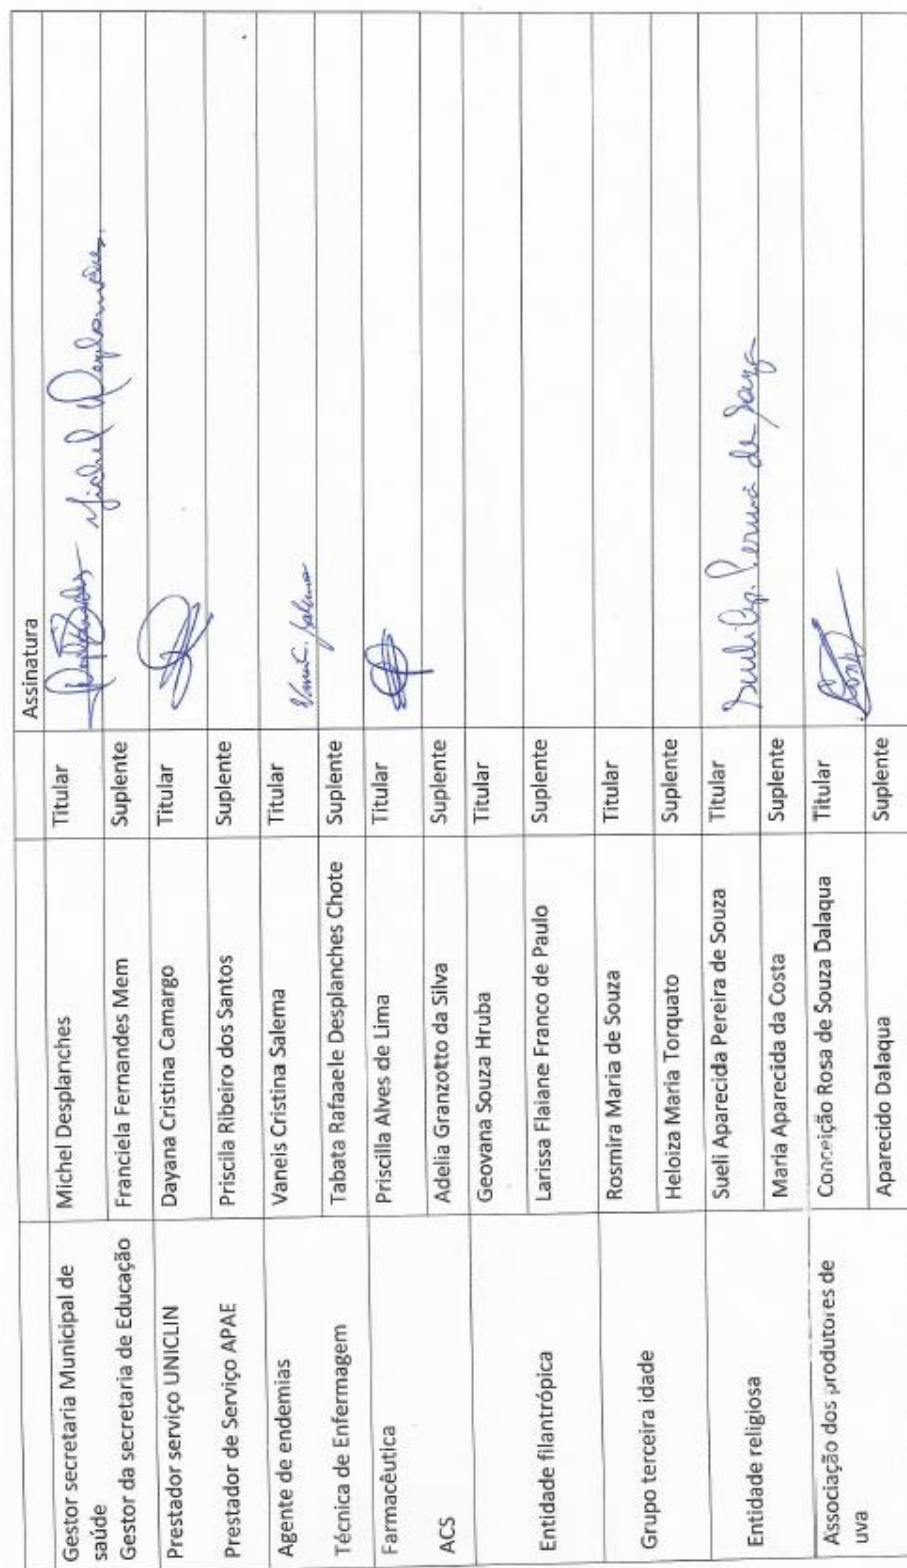 Assinatura
Gestor secretaria Municipal de saúde Michel Desplanches Titular Michel Desplanches
Gestor da secretaria de Educação Franciela Fernandes Mem Suplente
Prestador serviço UNICLIN Dayana Cristina Camargo Titular
Prestador de Serviço APAE Priscila Ribeiro dos Santos Suplente
Agente de endemias Vaneis Cristina Salema Titular
Técnica de Enfermagem Tabata Rafaaele Desplanches Chote Suplente
Farmacêutica Priscilla Alves de Lima Titular
ACS Adelia Granzotto da Silva Suplente
Geovana Souza Hruba Titular
Entidade filantrópica Larissa Flaiane Franco de Paulo Suplente
Rosmira Maria de Souza Titular
Grupo terceira idade Heloiza Maria Torquato Suplente
Sueli Aparecida Pereira de Souza Titular Sueli Ap. Pereira de Souza
Entidade religiosa Maria Aparecida da Costa Suplente
Associação dos produtores de uva Conceição Rosa de Souza Dalaqua Titular
Aparecido Dalaqua Suplente